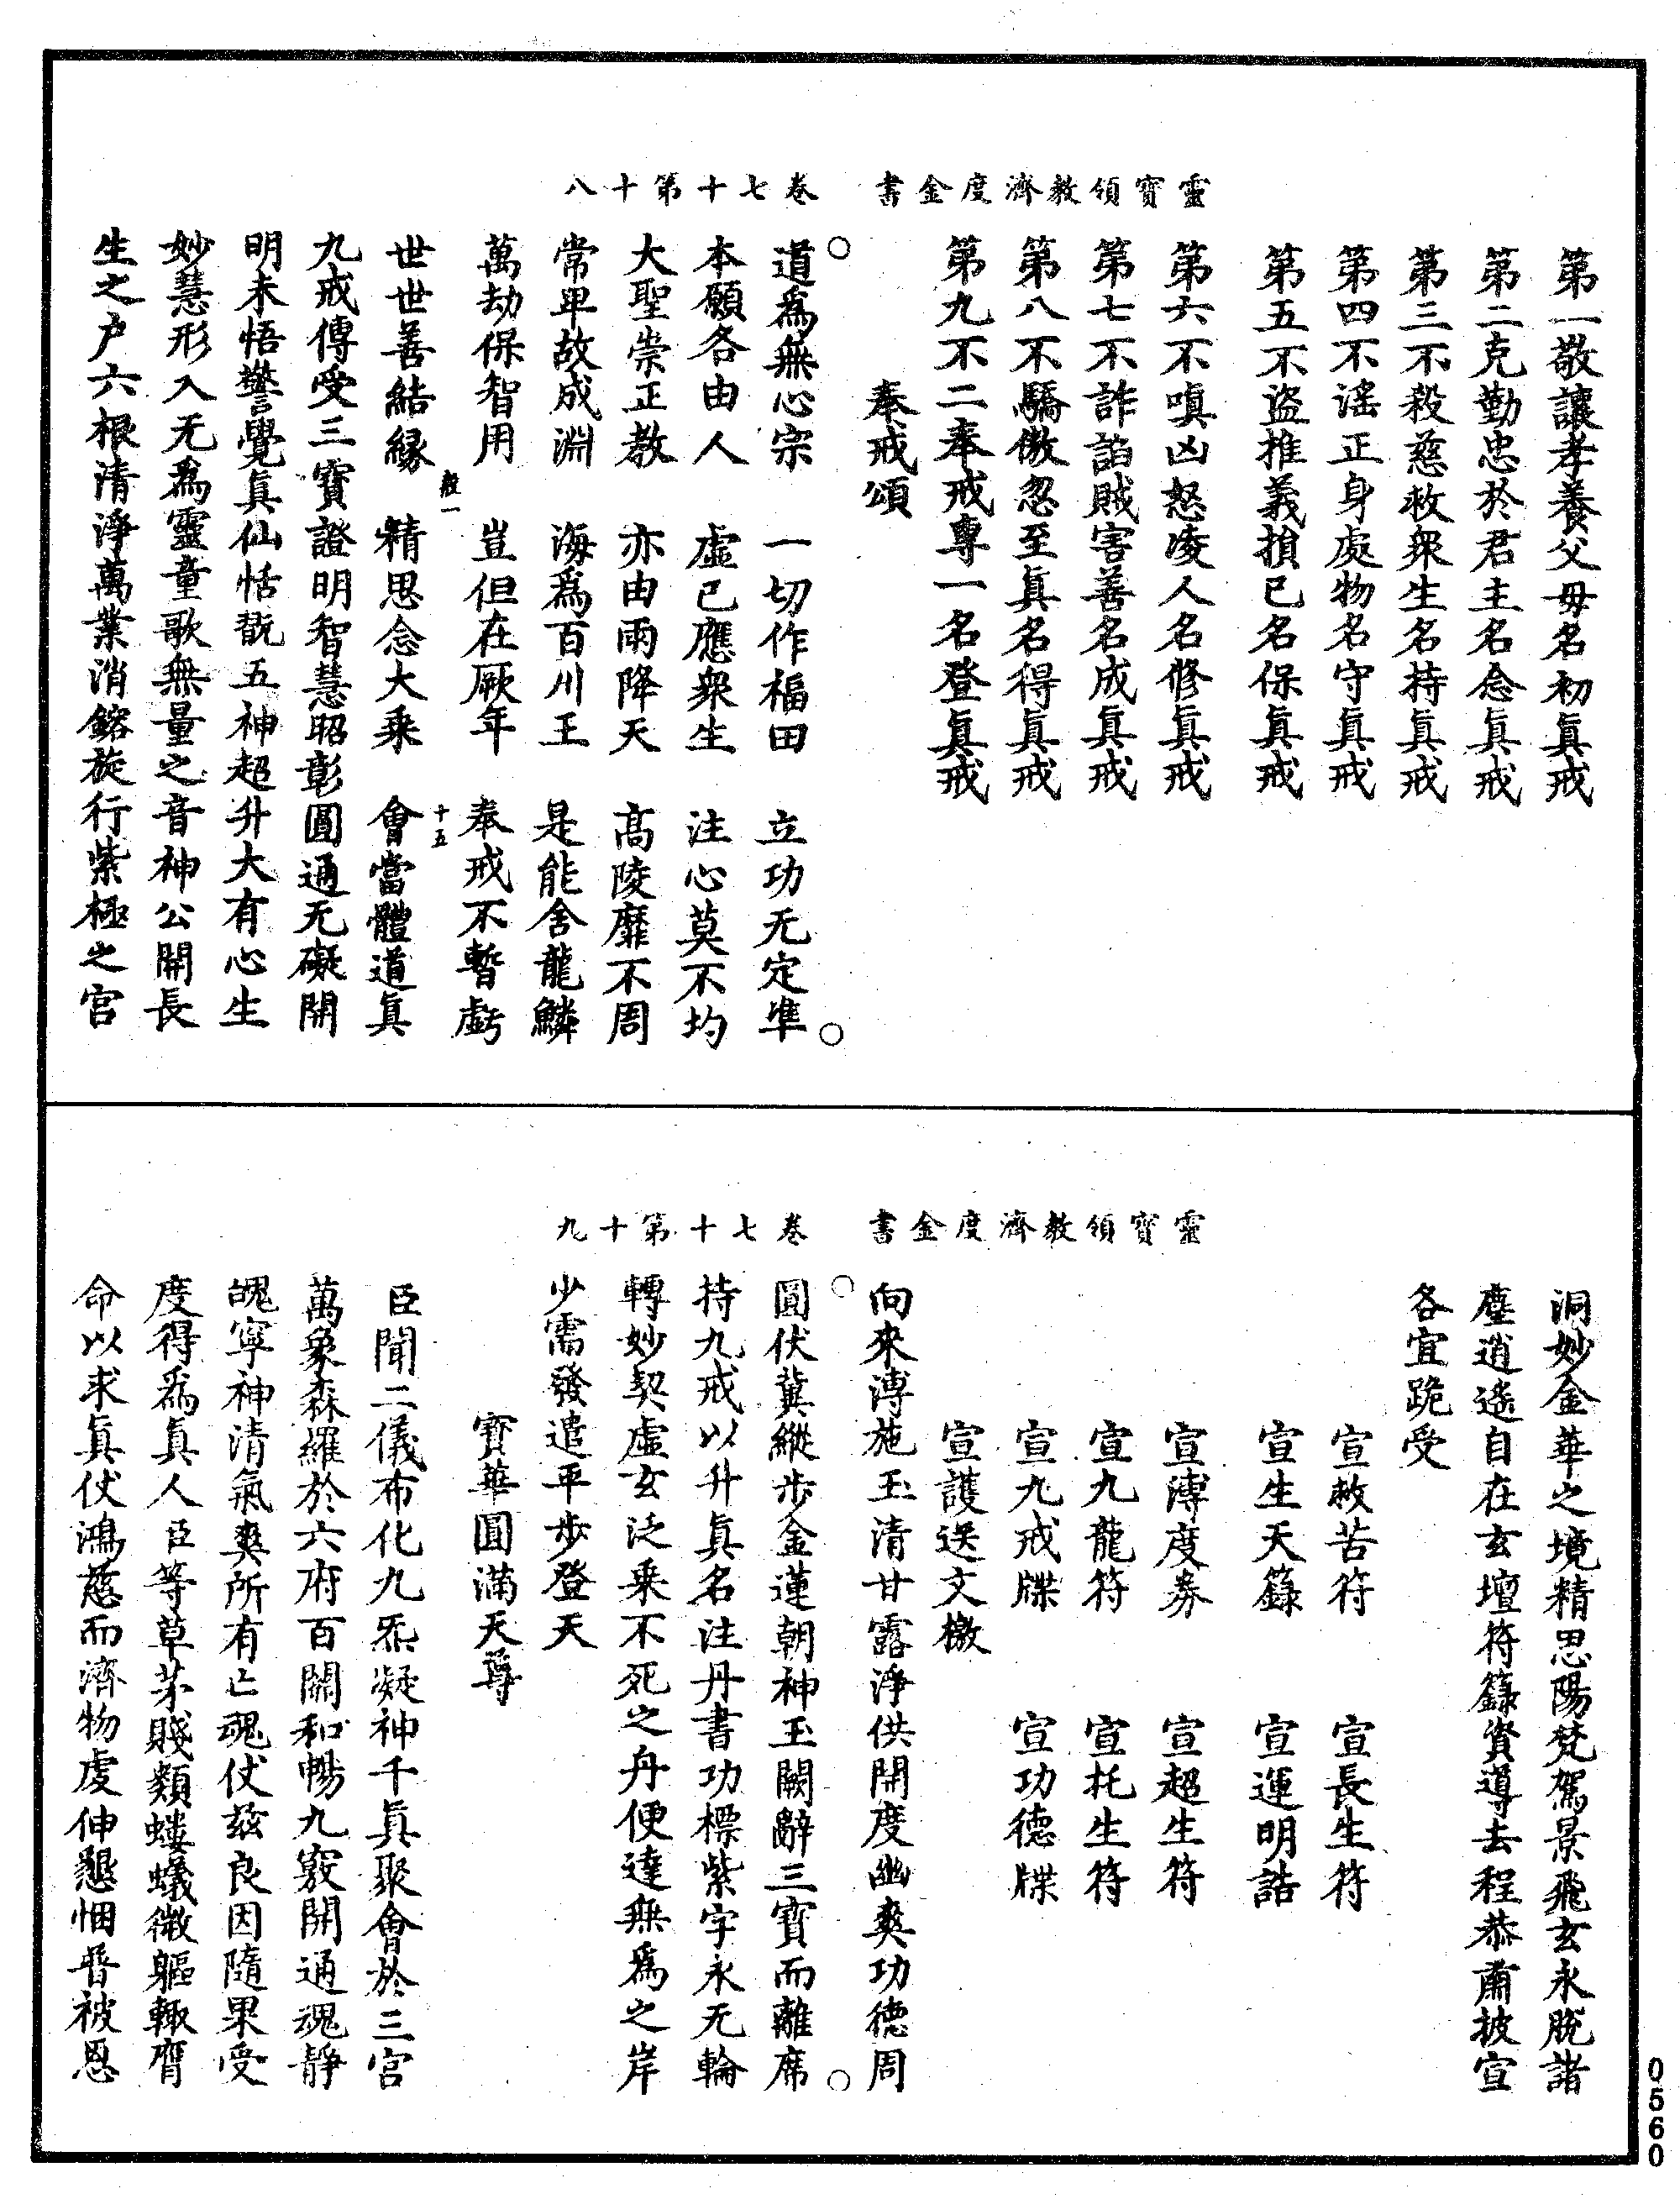 靈寶領教濟度金書　卷七十第十八
第一敬讓孝養父母名初眞戒
第二克勤忠於君主名念眞戒
第三不殺慈救衆生名持眞戒
第四不滛正身處物名守眞戒
第五不盜推義損己名保眞戒
第六不嗔凶怒凌人名修眞戒
第七不詐諂賊害善名成眞戒
第八不驕傲忽至眞名得眞戒
第九不二奉戒專一名登眞戒
奉戒頌
道爲無心宗　一切作福田　立功无定準
本願各由人　虛己應衆生　注心莫不均
大聖崇正教　亦由雨降天　高陵靡不周
常卑故成淵　海爲百川王　是能舍龍鱗
萬劫保智用　豈但在厥年　奉戒不暫虧
世世善結緣　精思念大乘　會當體道眞
殺一　十五
九戒傳受三寶證明智慧昭彰圓通无礙開
明未悟警覺眞仙恬翫五神超升大有心生
妙慧形入无爲靈童歌無量之音神公開長
生之戶六根清淨萬業消鎔旋行紫極之宮
靈寶領教濟度金書　卷七十第十九
洞妙金華之境精思陽梵駕景飛玄永脫諸
塵逍遙自在玄壇符籙資導去程恭肅披宣
各宜跪受
宣救苦符　宣長生符
宣生天籙　宣運明誥
宣溥度券　宣超生符
宣九龍符　宣托生符
宣九戒牒　宣功德牒
宣護送文檄
向來溥施玉清甘露淨供開度幽爽功德周
圓伏冀縱步金蓮朝神玉闕辭三寶而離席
持九戒以升眞名注丹書功標紫字永无輪
轉妙契虛玄泛乘不死之舟便達無爲之岸
少需發遣平步登天
寶華圓滿天尊
臣聞二儀布化九炁凝神千眞聚會於三宮
萬象森羅於六府百關和暢九竅開通魂靜
魄寧神清氣爽所有亡魂伏茲良因隨果受
度得爲眞人臣等草茅賤類螻蟻微軀輙膺
命以求眞伏鴻慈而濟物虔伸懇悃普被恩
0560